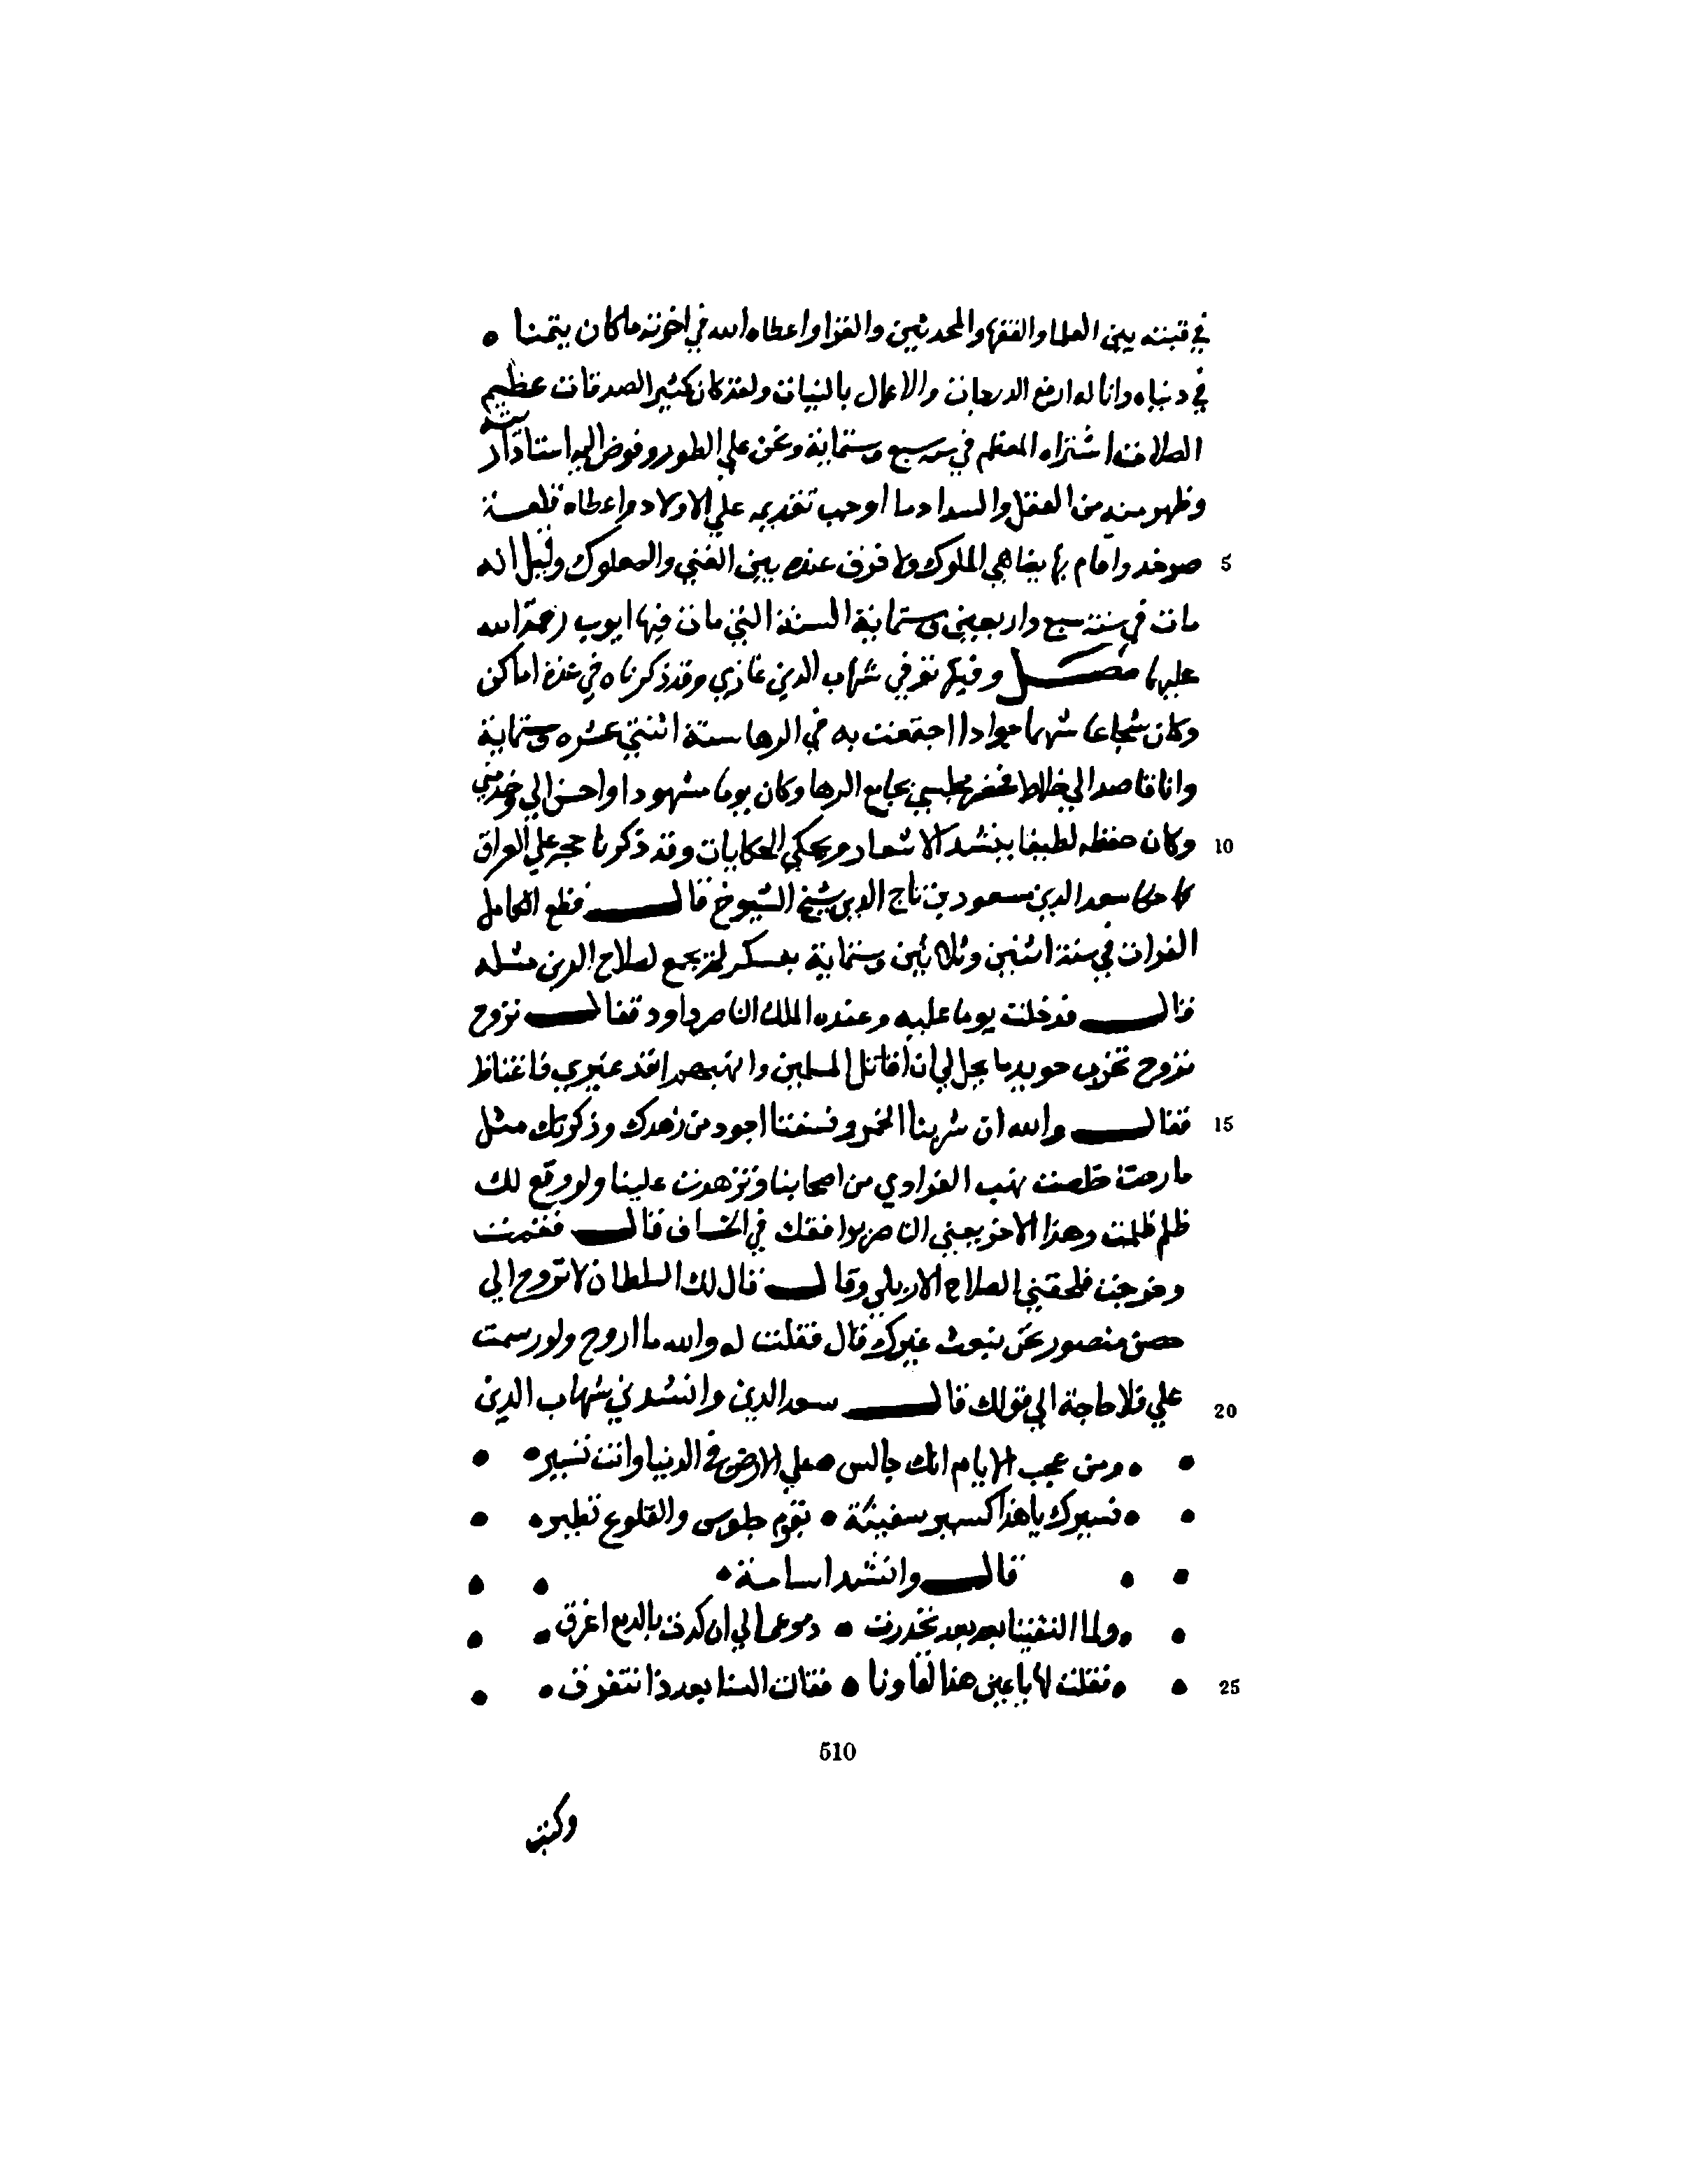 في قبته بين العلما والفقها والمحدثين والقرا واعطاه الله في اخرته ما كان يتمنا
في دنياه واناله ارفع الدرجات والاعمال بالنيات ولقد كان كثير الصدقات عظيم
الصلات اشتراه المعظم في سنة سبع وستماية ونحن علي الطور وفوض اليه استاذ داريته
وظهر منه من العقل والسداد ما اوجب تقديمه علي الاولاد واعطاه قلعة
5 صرخد واقام بها يضاهي الملوك ولا فرق عنده بين الغني والصعلوك وقيل انه
مات في سنة سبع واربعين وستماية السنة التي مات فيها ايوب رحمة الله
عليهما فصل وفيها توفي شهاب الدين غازي وقد ذكرناه في عدة اماكن
وكان شجاعا شهما جوادا اجتمعت به في الرها سنة اثنتي عشره وستماية
وانا قاصد الي خلاط فحضر مجلسي بجامع الرها وكان يوما مشهودا واحسن الي وخدمني
10 وكان حفظه لطيفا ينشد الاشعار ويحكي الحكايات وقد ذكرنا حجه علي العراق
حكا سعد الدين مسعود بن تاج الدين شيخ الشيوخ قال قطع الكامل
الفرات في سنة اثنين وثلاثين وستماية بعسكر لم يجمع لصلاح الدين مثله
قال فدخلت يوما عليه وعنده الملك الناصر داود فقال تروح
تروح تخرب ما يحل لي ان اقاتل المسلمين وانهبهم انفذ غيري فاغتاظ
15 فقال والله ان شربنا الخمر وفسقنا اجود من زهدك وذكرتك مثل
ما رحت خلصت نهب الفراوي من اصحابنا وتزهدت علينا ولو وقع لك
ظلم ظلمت وهذا الاخر يعني الناصر يوافقك في قال فقمت
وخرجت فلحقني الصلاح الاربلي وقال قال لك السلطان لا تروح الي
حصن منصور نحن نبعث غيرك قال فقلت له والله ما اروح ولو رسمت
20 علي فلا حاجة الي قولك قال سعد الدين وانشدني شهاب الدين
• • ومن عجب الايام انك جالس • علي الارض في الدنيا وانت تسير • •
• • تسيرك يا هذا كسير سفينة • بقوم جلوس والقلوع تطير • •
• • قال وانشد اسامة • • •
• • ولما التقينا بعد بعد تحدرت • دموعهما الي ان كدت بالدمع اغرق • •
25 • • فقلت لها يا عين هذا لقاونا • فقالت السنا بعد ذا نتفرق • •
510
وكتب